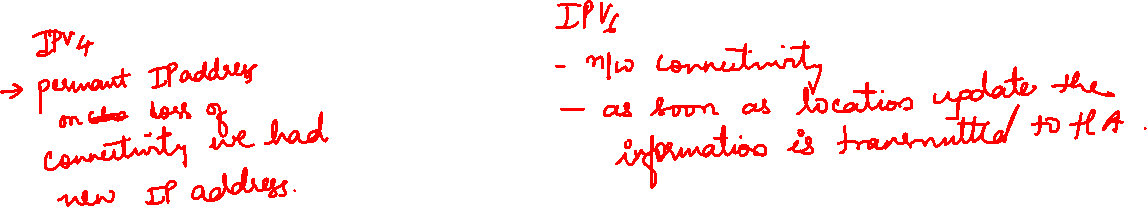 IPV4
→ permnant IP address
on loss of
connectivity we had
new IP address.
IPV6
- n/w connectivity
- as soon as location update the
information is transmitted to HA.